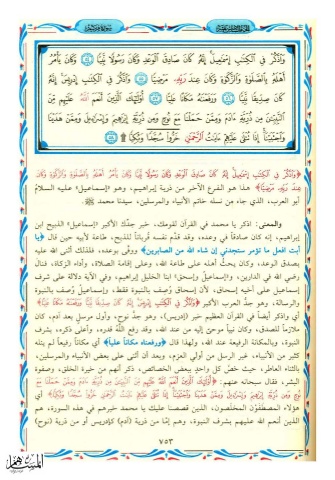 وَاذْكُرْ فِي الْكِتَابِ إِسْمَاعِيلَ إِنَّهُ كَانَ صَادِقَ الْوَعْدِ وَكَانَ رَسُولًا نَّبِيًّا ۝٥٤ وَكَانَ يَأْمُرُ
أَهْلَهُ بِالصَّلَاةِ وَالزَّكَاةِ وَكَانَ عِندَ رَبِّهِ مَرْضِيًّا ۝٥٥ وَاذْكُرْ فِي الْكِتَابِ إِدْرِيسَ إِنَّهُ
كَانَ صِدِّيقًا نَّبِيًّا ۝٥٦ وَرَفَعْنَاهُ مَكَانًا عَلِيًّا ۝٥٧ أُولَٰئِكَ الَّذِينَ أَنْعَمَ اللَّهُ عَلَيْهِم مِّنَ
النَّبِيِّينَ مِن ذُرِّيَّةِ آدَمَ وَمِمَّنْ حَمَلْنَا مَعَ نُوحٍ وَمِن ذُرِّيَّةِ إِبْرَاهِيمَ وَإِسْرَائِيلَ وَمِمَّنْ هَدَيْنَا
وَاجْتَبَيْنَا إِذَا تُتْلَىٰ عَلَيْهِمْ آيَاتُ الرَّحْمَٰنِ خَرُّوا سُجَّدًا وَبُكِيًّا ۝٥٨
﴿وَاذْكُرْ فِي الْكِتَابِ إِسْمَاعِيلَ إِنَّهُ كَانَ صَادِقَ الْوَعْدِ وَكَانَ رَسُولًا نَّبِيًّا وَكَانَ يَأْمُرُ أَهْلَهُ بِالصَّلَاةِ وَالزَّكَاةِ وَكَانَ
عِندَ رَبِّهِ مَرْضِيًّا﴾ هذا هو الفرع الآخر من ذرية إبراهيم، وهو «إسماعيل» عليه السلام
أبو العرب، الذي جاء من نسله خاتم الأنبياء والمرسلين، سيدنا محمد ﷺ
والمعنى: اذكر يا محمد في القرآن لقومك، خبر جدّك الأكبر «إسماعيل» الذبيح ابن
إبراهيم، إنه كان صادقاً في وعده، وقد قدّم نفسه قرباناً للذبح، طاعة لأبيه حين قال ﴿يا
أبت افعل ما تؤمر ستجدني إن شاء الله من الصابرين﴾ ووفّى بوعده، فلذلك أثنى الله عليه
بصدق الوعد، وكان يحثّ أهله على طاعة الله، وعلى إقامة الصلاة، وأداء الزكاة، فنال
رضى الله في الدارين، وإسماعيل وإسحق ابنا الخليل إبراهيم، وفي الآية دلالة على شرف
إسماعيل على أخيه إسحاق، لأن إسحاق وُصف بالنبوة فقط، وإسماعيل وُصف بالنبوة
والرسالة، وهو جدّ العرب الأكبر ﴿وَاذْكُرْ فِي الْكِتَابِ إِدْرِيسَ إِنَّهُ كَانَ صِدِّيقًا نَّبِيًّا وَرَفَعْنَاهُ مَكَانًا عَلِيًّا﴾
أي واذكر أيضاً في القرآن العظيم خبر (إدريس)، وهو جدّ نوح، وأول مرسل بعد آدم، كان
ملازماً للصدق، وكان نبياً موحىً إليه من عند الله، وقد رفع الله قدره، وأعلى ذكره، بشرف
النبوة، وبالمكانة الرفيعة عند الله، ولهذا قال ﴿ورفعناه مكاناً علياً﴾ أي مكاناً رفيعاً لم ينله
كثير من الأنبياء، غير الرسل من أولي العزم، وبعد أن أثنى على بعض الأنبياء والمرسلين،
بالثناء العاطر، حيث خصّ كل واحد ببعض الخصائص، ذكر أنهم من خيرة الخلق، وصفوة
البشر، فقال سبحانه عنهم: ﴿أُولَٰئِكَ الَّذِينَ أَنْعَمَ اللَّهُ عَلَيْهِم مِّنَ النَّبِيِّينَ مِن ذُرِّيَّةِ آدَمَ وَمِمَّنْ حَمَلْنَا مَعَ
نُوحٍ وَمِن ذُرِّيَّةِ إِبْرَاهِيمَ وَإِسْرَائِيلَ وَمِمَّنْ هَدَيْنَا وَاجْتَبَيْنَا إِذَا تُتْلَىٰ عَلَيْهِمْ آيَاتُ الرَّحْمَٰنِ خَرُّوا سُجَّدًا وَبُكِيًّا﴾ أي
هؤلاء المصطفَوْن المخلصون، الذين قصصنا عليك يا محمد خبرهم في هذه السورة، هم
الذين أنعم الله عليهم بشرف النبوة، وهم إمّا من ذرية (آدم) كإدريس أو من ذرية (نوح)
٧٥٣